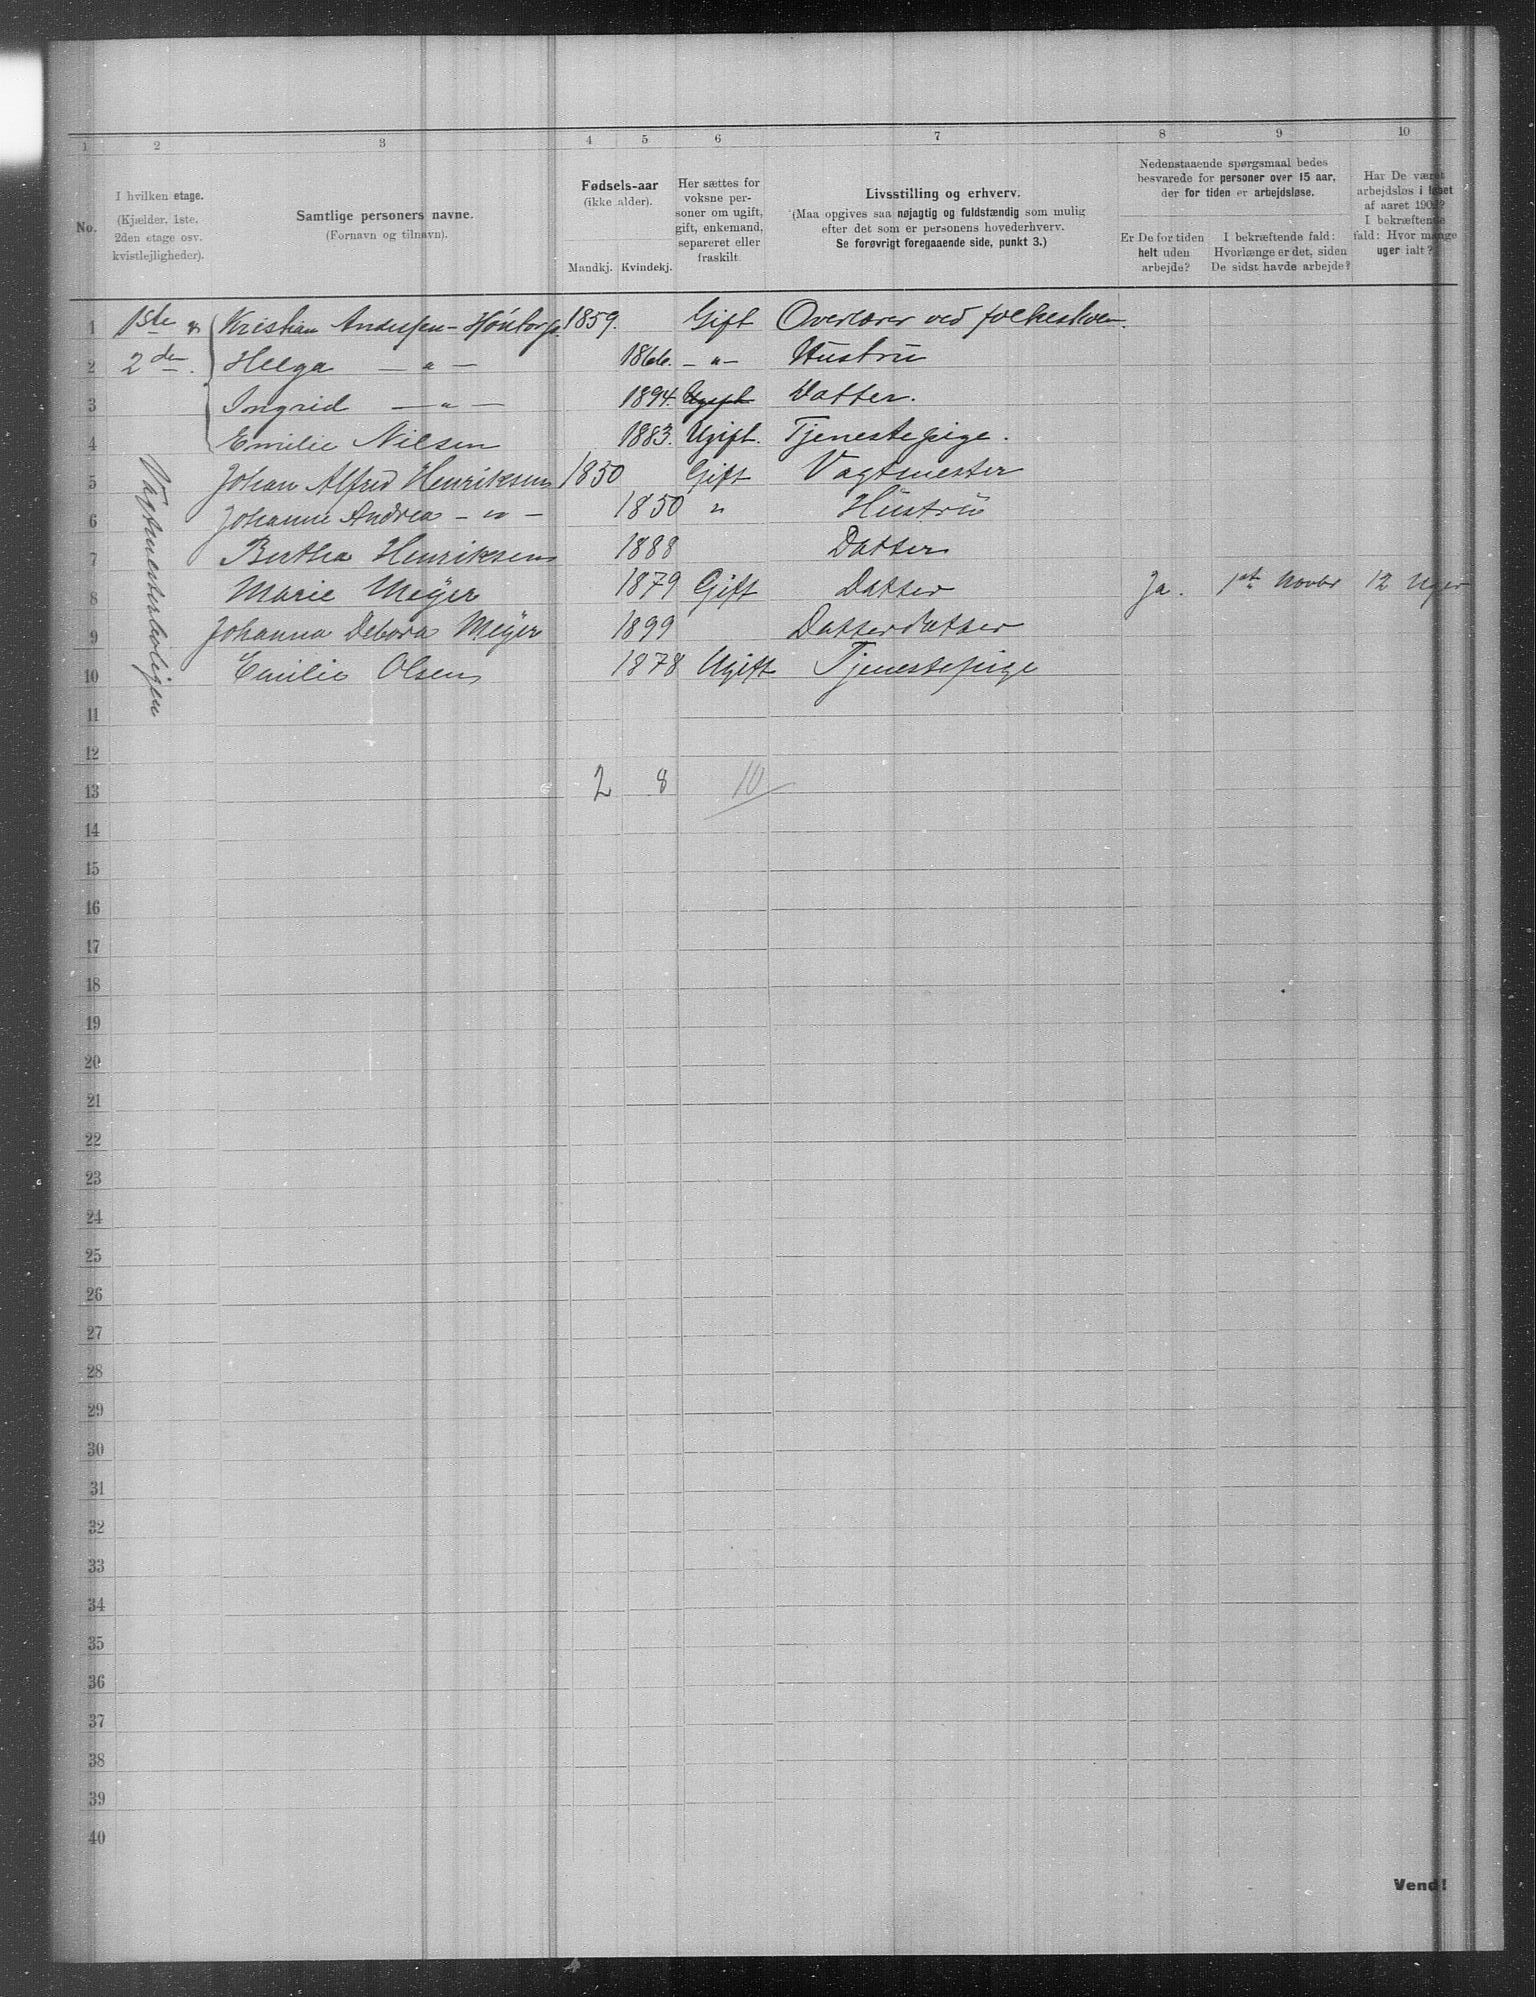 1 2 3 4 5 6 7 8 9 10
No.
I hvilken etage.
(Kjælder, 1ste,
2den etage osv.
kvistlejligheder).
Samtlige personers navne.
(Fornavn og tilnavn).
Fødsels-aar
(ikke alder).
Mandkj. Kvindekj.
Her sættes for
voksne per-
soner om ugift,
gift, enkemand,
separeret eller
fraskilt.
Livsstilling og erhverv.
(Maa opgives saa nøjagtig og fuldstændig som mulig
efter det som er personens hovederhverv.
Se forøvrigt foregaaende side, punkt 3.)
Nedenstaaende spørgsmaal bedes
besvarede for personer over 15 aar,
der for tiden er arbejdsløse.
Er De for tiden
helt uden
arbejde?
I bekræftende fald:
Hvorlænge er det, siden
De sidst havde arbejde?
Har De været
arbejdsløs i løbet
af aaret 190?
I bekræftende
fald: Hvor mange
uger ialt?
1 1ste Kristian Andersen - 1859. Gift Overlærer ved folkeskolen.
2 2den. Helga — " — 1866. — " — Hustru
3 Ingrid — " — 1894. Ugift Datter.
4 Emilie Nilsen 1883. Ugift. Tjenestepige.
Vagtmesterboligen
5 Johan Alfred Henriksen 1850 Gift Vagtmester
6 Johanne Andrea — " — 1850 " Hustru
7 Bertha Henriksen 1888 Datter
8 Marie Meÿer 1879 Gift Datter Ja. 1ste Novbr 12 Uger
9 Johanna Debora Meÿer 1899 Datterdatter
10 Emilie Olsen 1878 Ugift Tjenestepige
11
12
13 2 8 10
14
15
16
17
18
19
20
21
22
23
24
25
26
27
28
29
30
31
32
33
34
35
36
37
38
39
40
Vend!